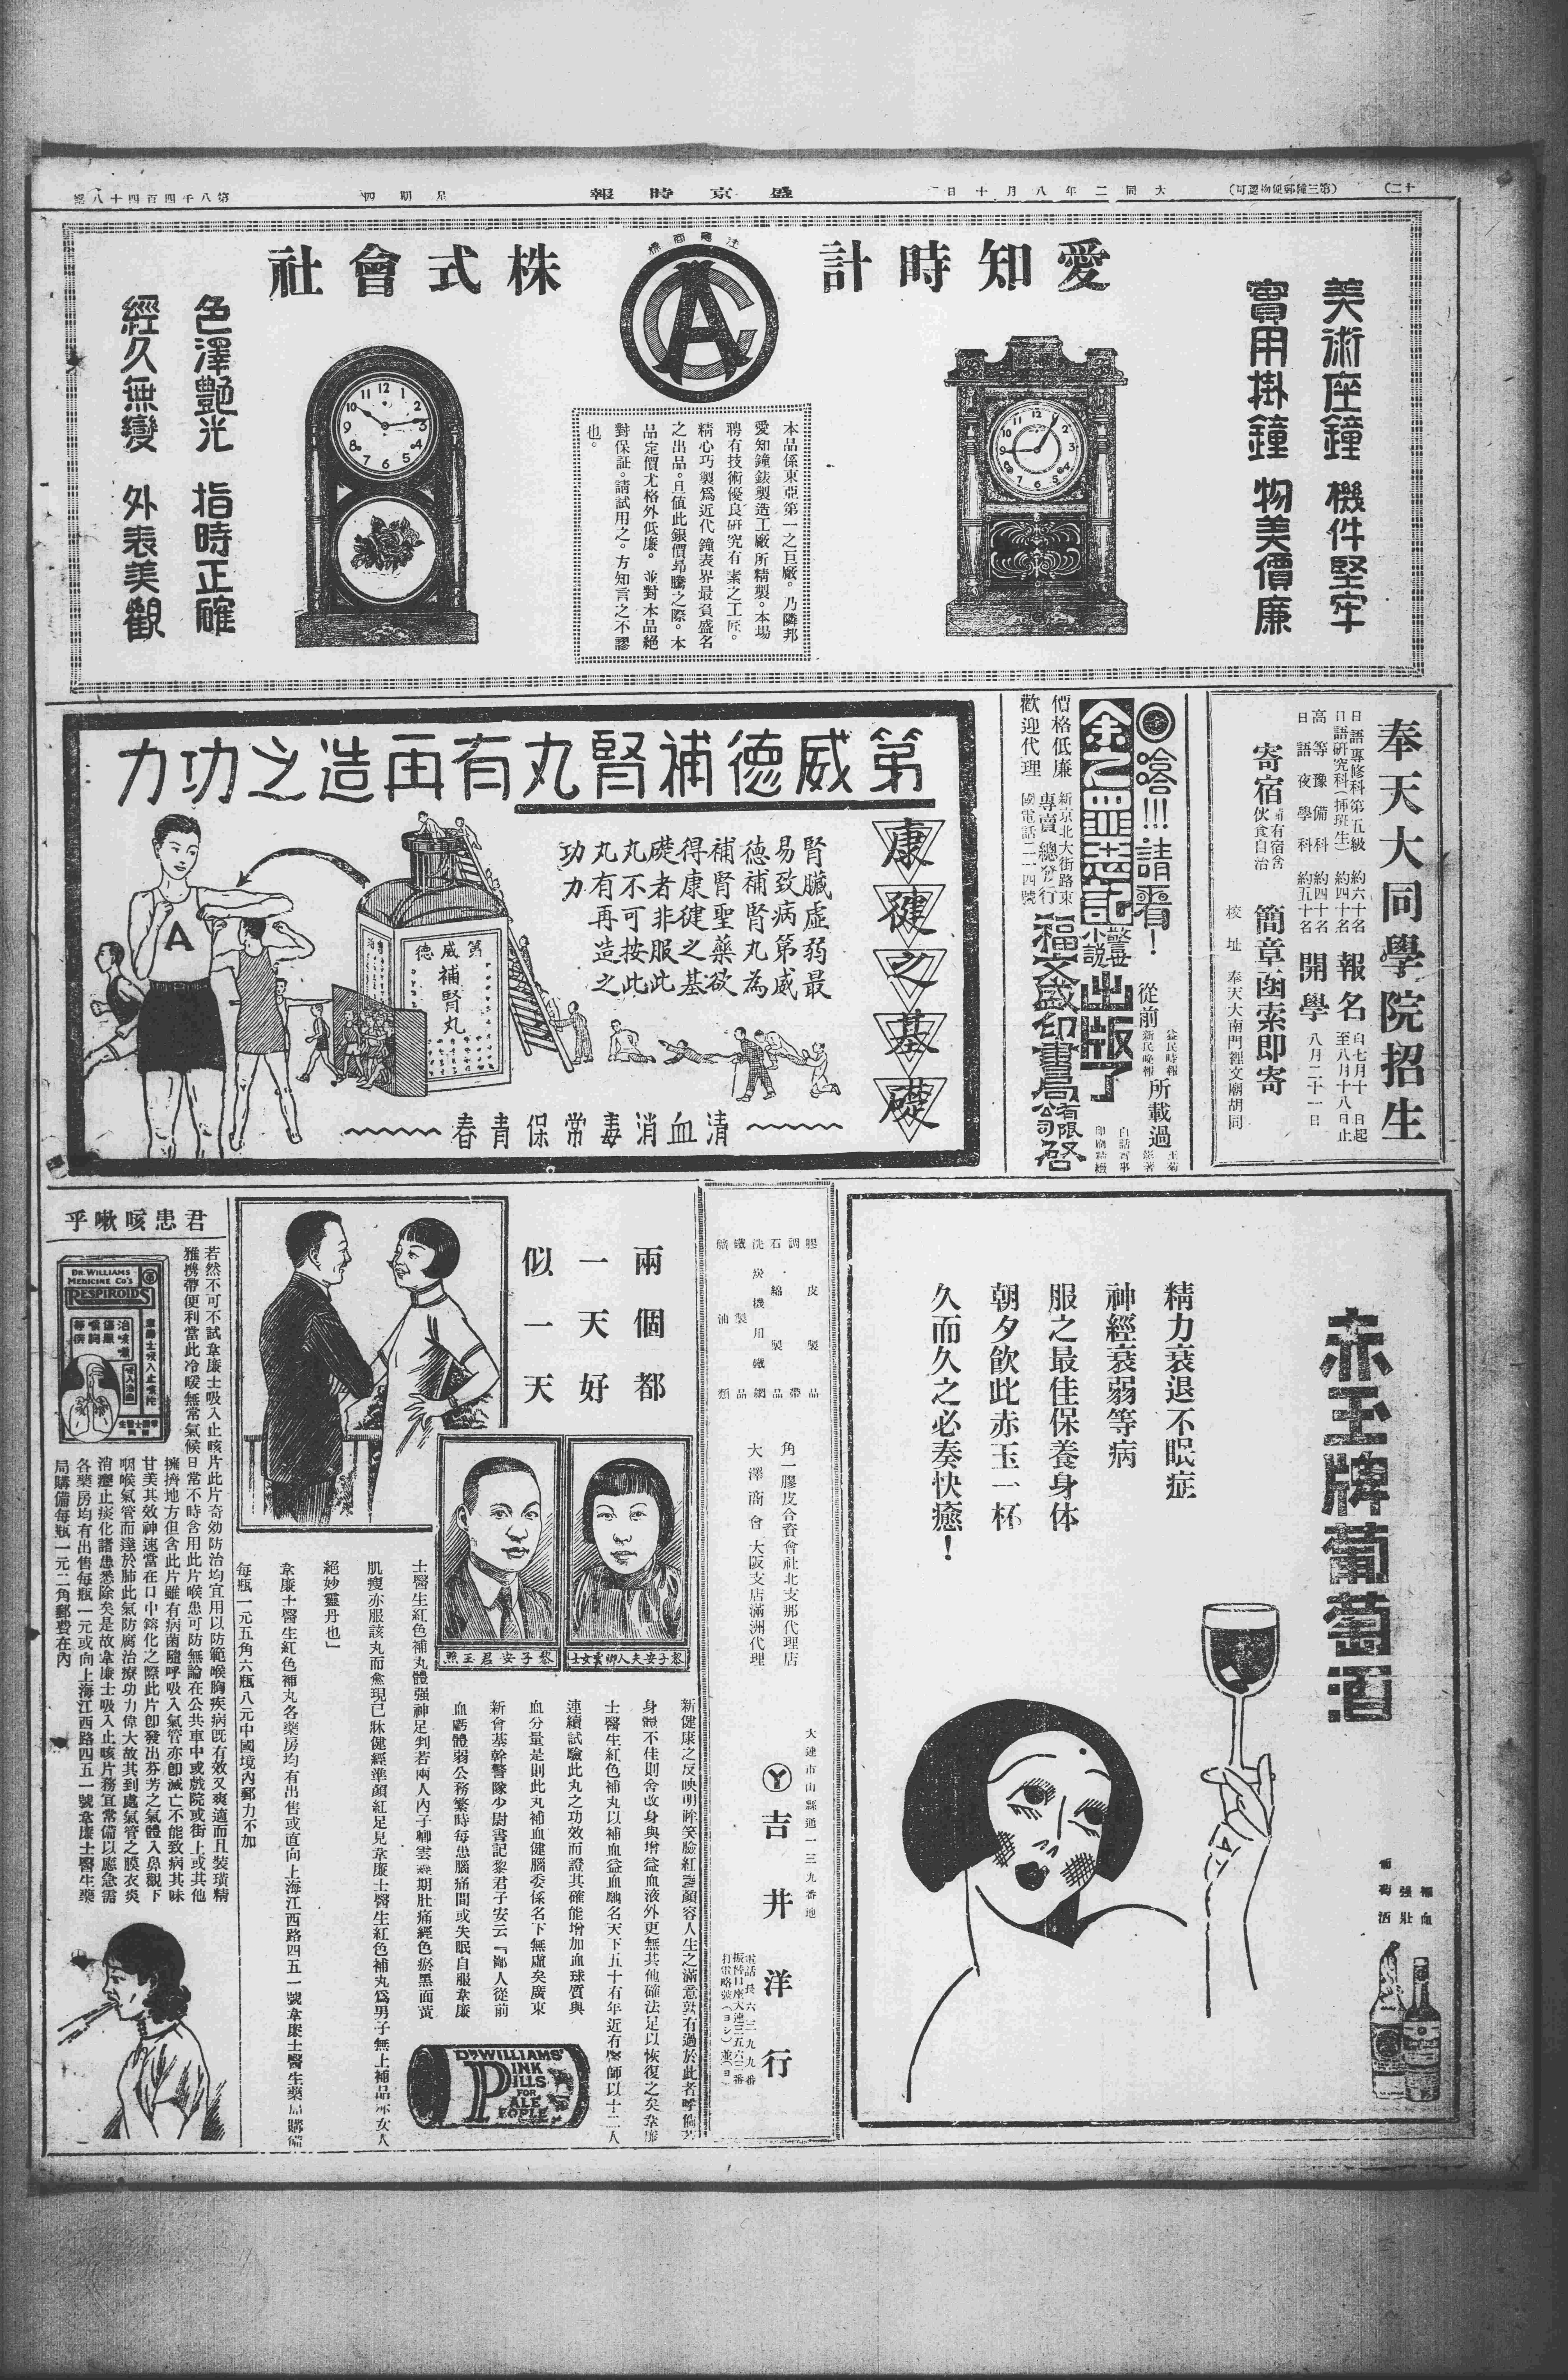 (十二)
(第三種郵便物認可)
大同二年八月十日
盛京時報
星期四
第八千四百四十八號
美術座鐘 機件堅牢
實用掛鐘 物美價廉
愛知時計
註冊商標
AC
株式會社
本品係東亞第一之巨廠。乃隣邦
愛知鐘錶製造工廠所精製。本場
聘有技術優良研究有素之工匠。
精心巧製爲近代鐘表界最負盛名
之出品。旦値此銀價昂騰之際。本
品定價尤格外低廉。並對本品絕
對保証。請試用之。方知言之不謬
也。
色澤艷光 指時正確
經久無變 外表美觀
奉天大同學院招生
日語專修科第五級 約六十名
日語研究科(插班生) 約四十名
高等豫備科 約四十名
日語夜學科 約五十名
報名 自七月十日起至八月十八日止
開學 八月二十一日
寄宿 備有宿舍伙食自治
簡章函索即寄
校址 奉天大南門裡文廟胡同
◎哈!!!請看!
從前 益民時報 新民晚報 所載過
王菊 著
余之罪惡記 警世小說 出版了
白話 事
印刷精緻
價格低廉
歡迎代理
新京北大街路東
專賣 總發行
國電話二一四號
福文盛印書局 有限公司 啓
第威德補腎丸有再造之功力
康健之基礎
腎臟虛弱最
易致病第威
德補腎丸為
補腎聖藥欲
得康健之基
礎者非服此
丸不可按此
丸有再造之
功力
第威德
補腎丸
A
清血消毒常保青春
赤玉牌葡萄酒
精力衰退不眠症
神經衰弱等病
服之最佳保養身体
朝夕飮此赤玉一杯
久而久之必奏快癒!
補血
强壯
葡萄酒
膠皮製品
調帶
石綿製品
洗炭機用鐵網
鐵製品
礦油類
角一膠皮合資會社北支那代理店
大澤商會大阪支店滿洲代理
大連市山縣通一三九番地
吉井洋行
電話長六三九九番
振替口座大連三五六三番
兩個都
一天好
似一天
黎子安夫人卿雲女士
黎子安君玉照
新健康之反映明眸笑臉紅潤顏容人生之滿意孰有過於此者乎倘若
身體不佳則舍改身與增益血液外更無其他確法足以恢復之矣韋廉
士醫生紅色補丸以補血益血馳名天下五十有年近有醫師以十二人
連續試驗此丸之功效而證其確能增加血球質與
血分量是則此丸補血健腦委係名下無虛矣廣東
新會基幹警隊少尉書記黎君子安云『鄙人從前
血虧體弱公務繁時每患腦痛間或失眠自服韋廉
士醫生紅色補丸體强神足判若兩人內子卿雲 期肚痛經色瘀黑面黃
肌瘦亦服該丸而愈現已牀健經準顏紅足見韋廉士醫生紅色補丸爲男子無上補品亦女人
絕妙靈丹也」
韋廉士醫生紅色補丸各藥房均有出售或直向上海江西路四五一號韋廉士醫生藥局購備
每瓶一元五角六瓶八元中國境內郵力不加
DR WILLIAMS'
PINK
PILLS
FOR
PALE
PEOPLE
君患咳嗽乎
DR. WILLIAMS
MEDICINE Co's
RESPIROIDS
韋廉士吸入止咳片
若然不可不試韋廉士吸入止咳片此片奇効防治均宜用以防範喉胸疾病旣有效又爽適而且裝璜精
雅携帶便利當此冷暖無常氣候日常不時含用此片喉患可防無論在公共車中或戲院或街上或其他
擁擠地方但含此片雖有病菌隨呼吸入氣管亦卽滅亡不能致病其味
甘美其效神速當在口中鎔化之際此片卽發出芬芳之氣體入鼻觀下
咽喉氣管而達於肺此氣防腐治療功力偉大故其到處氣管之膜衣炎
消癰止痰化諸患悉除矣是故韋廉士吸入止咳片務宜常備以應急需
各藥房均有出售每瓶一元或向上海江西路四五一號韋廉士醫生藥
局購備每瓶一元二角郵費在內